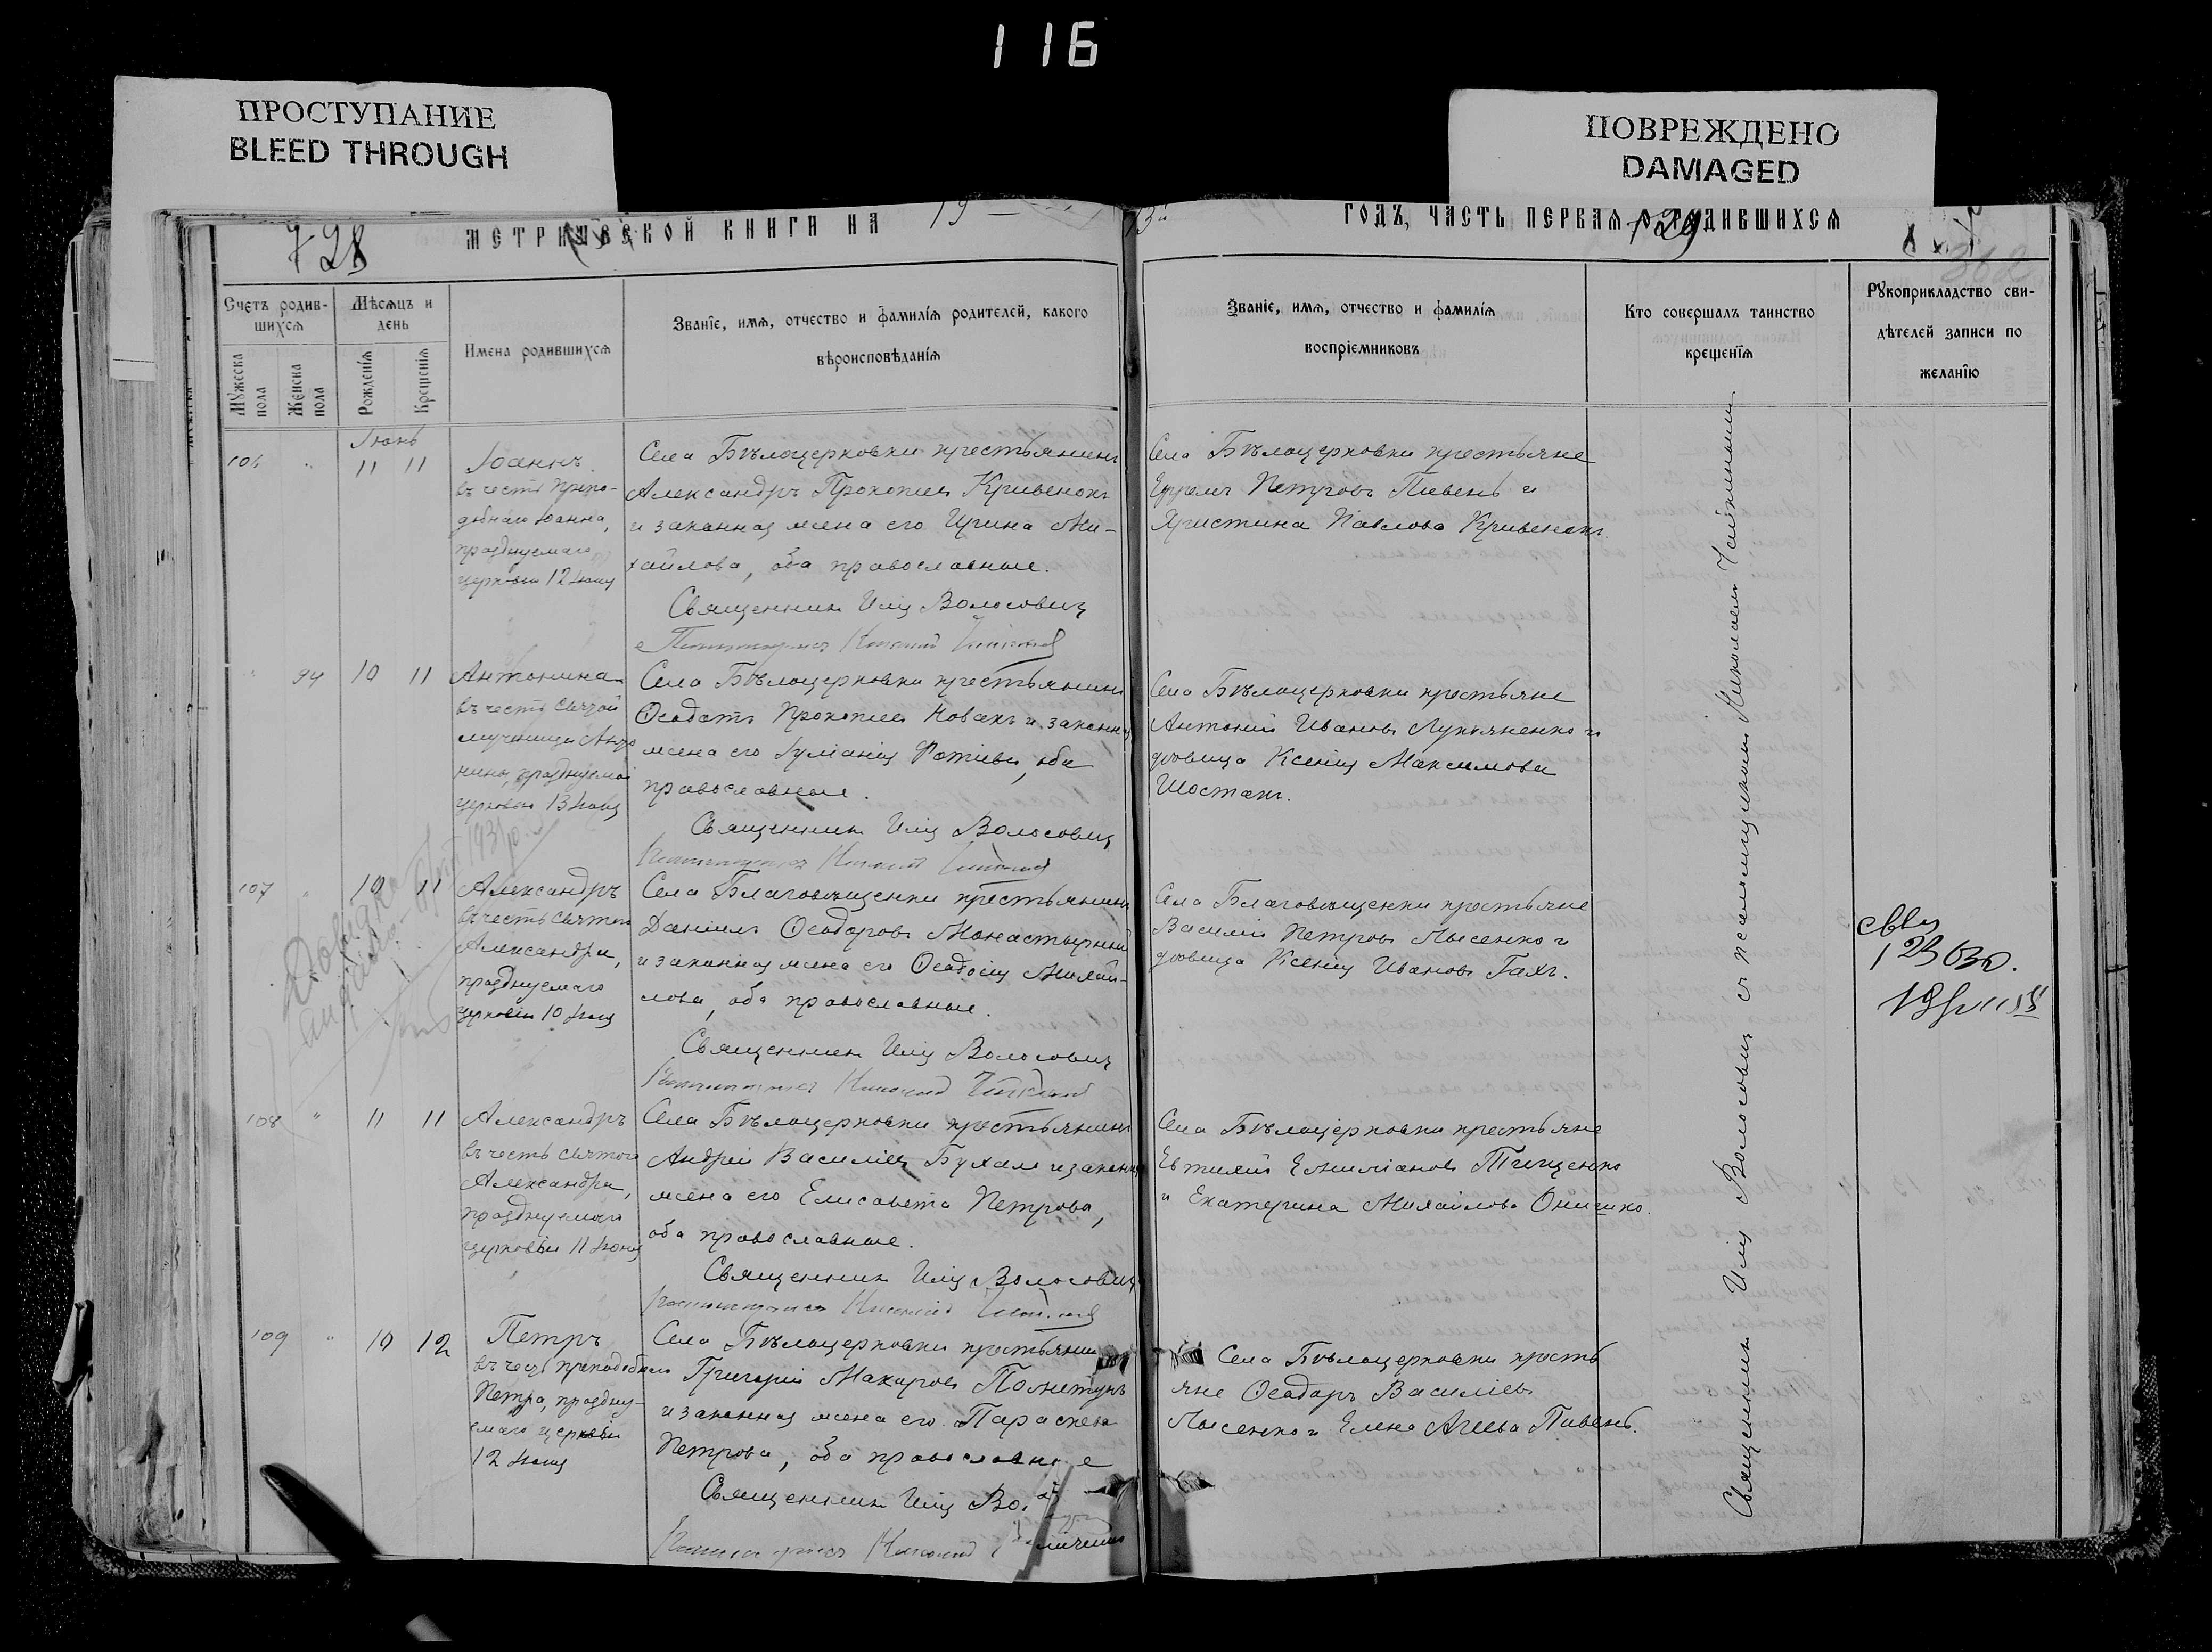 116
ПРОСТУПАНИЕ
BLEED THROUGH
ПОВРЕЖДЕНО
DAMAGED
728
МЕТРИЧЕСКОЙ КНИГИ НА 19
ГОДЪ, ЧАСТЬ ПЕРВАЯ О РОДИВШИХСЯ
729
362
Счетъ родив-
шихся
Мужеска пола
Женска пола
Мѣсяцъ и
день
Рожденія
Крещенія
Имена родившихся
Званіе, имя, отчество и фамилія родителей, какого
вѣроисповѣданія
Званіе, имя, отчество и фамилія
воспріемниковъ
Кто совершалъ таинство
крещенія
Рукоприкладство сви-
дѣтелей записи по
желанію
Іюнь
106 " 11 11
Іоаннъ
въ честь препо-
добнаго Іоанна,
празднуемаго
церковью 12 Іюня
Села Бѣлоцерковки крестьянинъ
Александръ Прокопіевъ Кривенокъ
и законная жена его Ирина Ми-
хайлова, оба православные.
Священникъ Илія Волосовичъ
Николай
Села Бѣлоцерковки крестьяне
Ефремъ Петровъ Пивень и
Христина Павлова Кривенокъ.
" 94 10 11
Антонина
въ честь святой
мученицы Анто
нины, празднуемой
церковью 13 Іюня
Села Бѣлоцерковки крестьянинъ
Ѳеодотъ Прокопіевъ Новакъ и законная
жена его Іуліанія Фотіева, оба
православные.
Священникъ Илія Волосовичъ
Николай
Села Бѣлоцерковки крестьяне
Антоній Ивановъ Лукьяненко и
вдовица Ксенія Максимова
Шостакъ.
107 " 10 11
Александръ
въ честь святого
Александра,
празднуемаго
церковью 10 Іюня
Села Благовѣщенки крестьянинъ
Даніилъ Ѳеодоровъ Монастырний
и законная жена его Ѳеодосія Михай-
лова, оба православные.
Священникъ Илія Волосовичъ
Николай
Села Благовѣщенки крестьяне
Василій Петровъ Лысенко и
вдовица Ксенія Иванова Гахъ.
108 " 11 11
Александръ
въ честь святого
Александра,
празднуемаго
церковью 11 Іюня
Села Бѣлоцерковки крестьянинъ
Андрей Василіевъ Бухало и законная
жена его Елисавета Петрова,
оба православные.
Священникъ Илія Волосовичъ
Николай
Села Бѣлоцерковки крестьяне
Евтихій Емиліановъ Тищенко
и Екатерина Михайлова Онишко.
109 " 10 12
Петръ
въ честь преподобнаго
Петра, праздну-
емаго церковью
12 Іюня
Села Бѣлоцерковки крестьянинъ
Григорій Макаровъ
и законная жена его Параскева
Петрова, оба православные
Священникъ Илія
Николай
Села Бѣлоцерковки кресть
яне Ѳеодоръ Василіевъ
Лысенко и Елена Агеева Пивень.
Священникъ Илія Волосовичъ съ псаломщикомъ Николаемъ